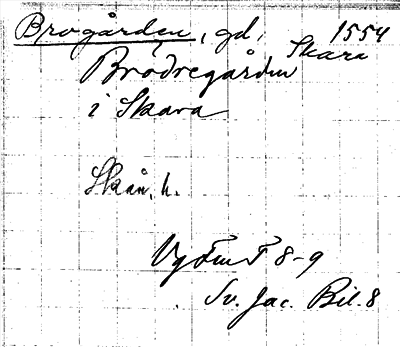 Brogården, gd, 1554
Skara
Brödregården
i Skara
Skån. h.
VgFmT 8-9
Sv. Jac. Bil. 8